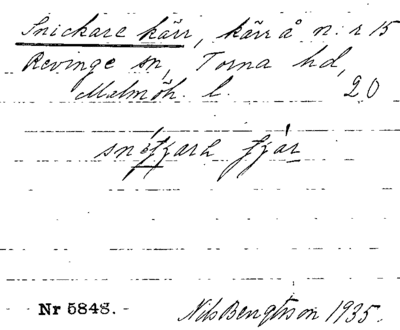 Snickare kärr, kärr å n:r 15
Revinge sn, Torna hd,
Malmöh. l. 20
Nr 5848.
Nils Bengtsson 1935.